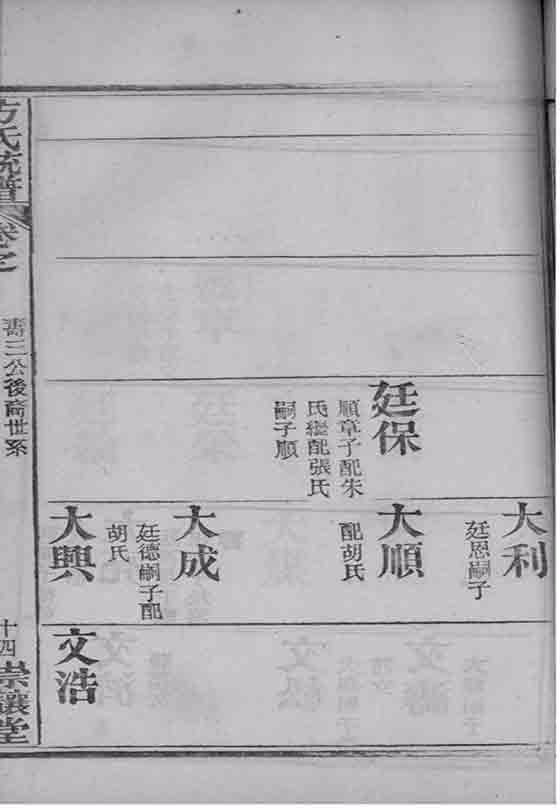 廷保
順章子配朱
氏繼配張氏
嗣子順
大利
廷恩嗣子
大順
配胡氏
大成
廷德嗣子配
胡氏
大興
文浩
方氏統譜
卷之
壽三公後裔世系
十四
崇讓堂